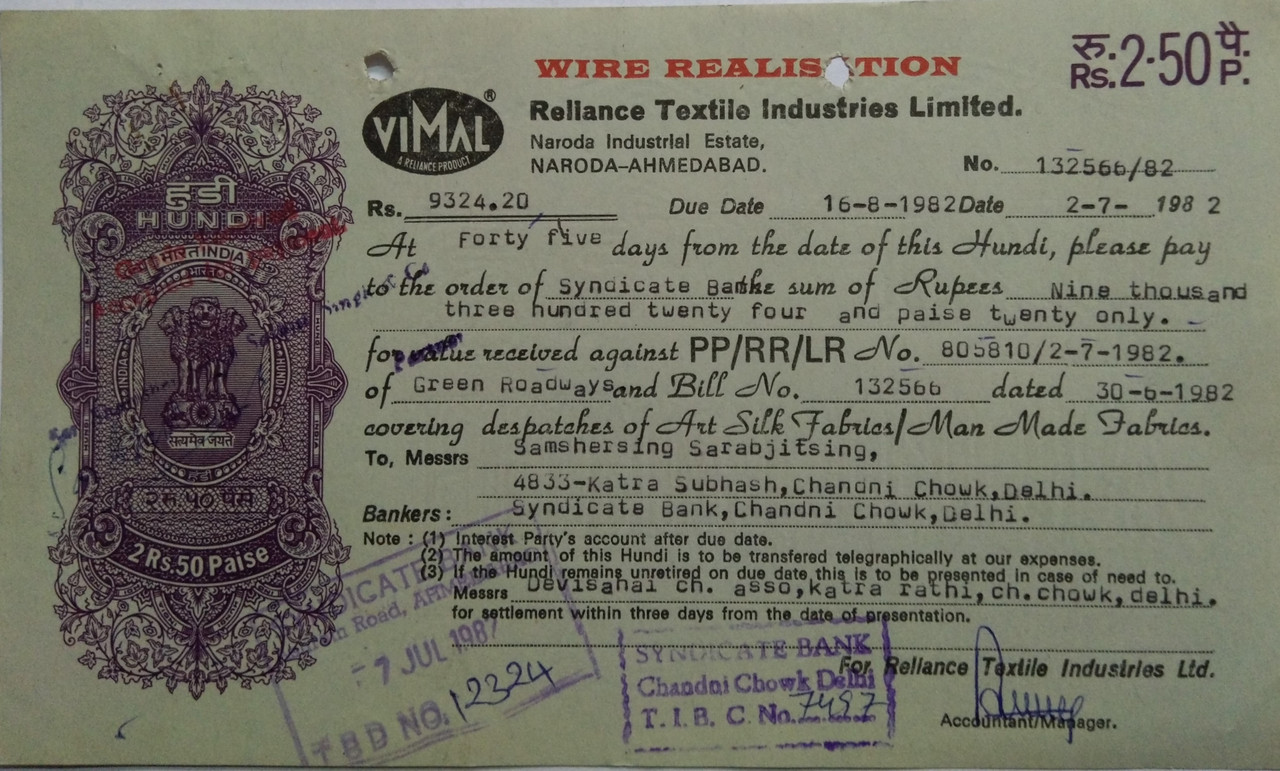 रु. 2·50 पै.
Rs. P.
WIRE REALISATION
VIMAL ®
A RELIANCE PRODUCT
Reliance Textile Industries Limited.
Naroda Industrial Estate,
NARODA-AHMEDABAD.
No. 132566/82
Rs. 9324.20 Due Date 16-8-1982 Date 2-7- 198 2
At Forty five days from the date of this Hundi, please pay
to the order of Syndicate Bank the sum of Rupees Nine thousand
three hundred twenty four and paise twenty only. -
for value received against PP/RR/LR No. 805810/2-7-1982.
of Green Roadways and Bill No. 132566 dated 30-6-1982
covering despatches of Art Silk Fabrics/Man Made Fabrics.
To, Messrs Samshersing Sarabjitsing,
4833-Katra Subhash, Chandni Chowk, Delhi.
Bankers: Syndicate Bank, Chandni Chowk, Delhi.
Note : (1) Interest Party's account after due date.
(2) The amount of this Hundi is to be transfered telegraphically at our expenses.
(3) If the Hundi remains unretired on due date this is to be presented in case of need to.
Messrs Devisahai ch. asso, katra rathi, ch. chowk, delhi.
for settlement within three days from the date of presentation.
For Reliance Textile Industries Ltd.
Accountant/Manager.
हुंडी
HUNDI
भारत INDIA
भारत
INDIA
HUNDI
सत्यमेव जयते
हुंडी
2 Rs. 50 Paise
Partner
SYNDICATE BANK
Road,
7 JUL 198
TBD NO. 12324
SYNDICATE BANK
Chandni Chowk Delhi
T. I. B. C. No. 7497